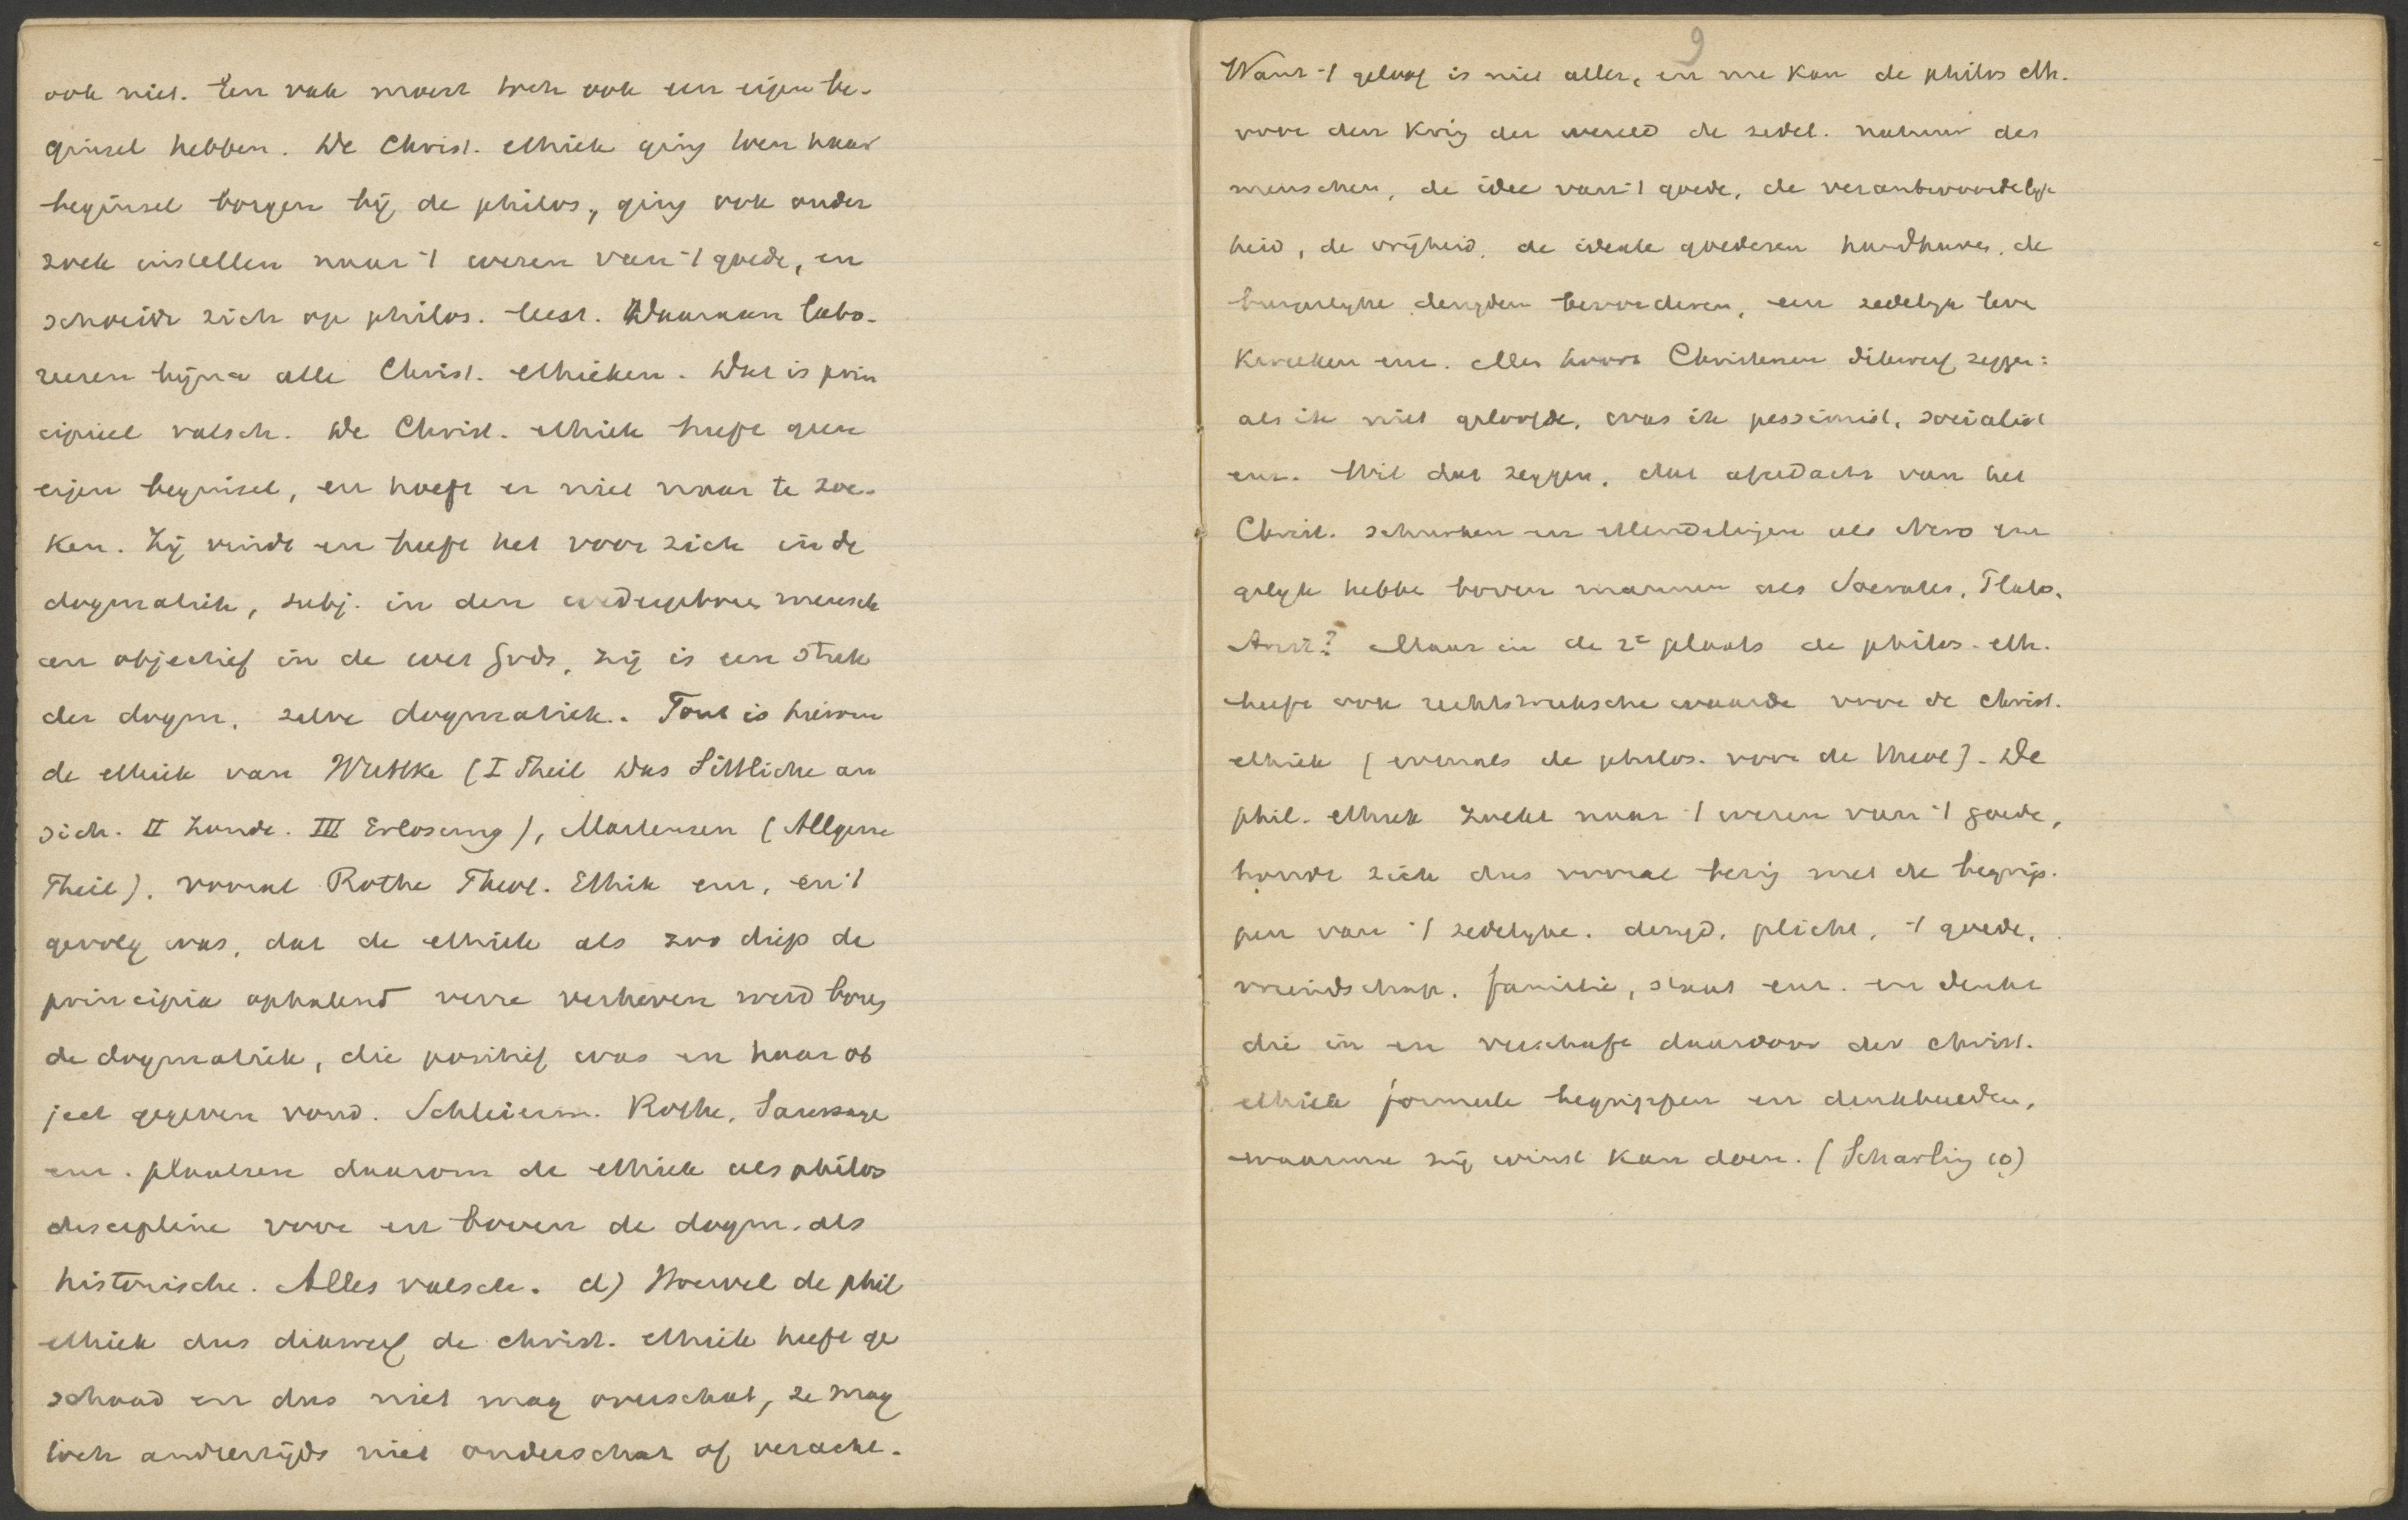 ook niet. Een vak moest toch ook een eigen be-
ginsel hebben. De Christ. ethiek ging toen haar
beginsel borgen bij de philos., ging ook onder
zoek instellen naar 't wezen van 't goede, en
schoeide zich op philos. leest. Daaraan labo-
reeren bijna alle Christ. ethieken. Dat is prin
cipieel valsch. De Christ. ethiek heeft geen
eigen beginsel, en hoeft er niet naar te zoe-
ken. Zij vindt en heeft het voor zich in de
dogmatiek, subj. in den wedergeboren mensch
en objectief in de wet Gods, zij is een stuk
der dogm. zelve dogmatiek. Fout is hierom
de ethiek van Wuttke (I Theil Das Sittliche an
sich. II Zonde. III Erlosung), Martensen (Allgem
Theil), vooral Rothe Theol. Ethik enz, en 't
gevolg was, dat de ethiek als zoo diep de
principia ophalend verre verheven werd boven
de dogmatiek, die positief was en haar ob
ject gegeven vond. Schleierm. Rothe, Saussaye
enz. plaatsen daarom de ethiek als philos
discipline voor en boven de dogm. als
historische. Alles valsch. d) Hoewel de phil
ethiek dus dikwerf de christ. ethiek heeft ge
schaad en dus niet mag overschat, ze mag
toch anderzijds niet onderschat of veracht.
9
Want 't geloof is niet aller, en me kan de philos eth.
voor den kring der wereld de zedel. natuur des
menschen, de idee van 't goede, de verantwoordelijk
heid, de vrijheid, de ideale goederen handhaven, de
burgerlijke deugden bevorderen, een zedelijk leven
kweeken enz. Men hoort Christenen dikwerf zeggen:
als ik niet geloofde, was ik pessimist, socialist
enz. Wil dat zeggen, dat afgedacht van het
Christ. schurken en ellendelingen als Nero enz
gelijk hebben boven mannen als Socrates, Plato,
Arist? Maar in de 2e plaats de philos. eth.
heeft ook rechtstreeksche waarde voor de christ.
ethiek (evenals de philos. voor de theol). De
phil. ethiek zoekt naar 't wezen van 't goede,
houdt zich dus vooral bezig met de begrip-
pen van 't zedelijke, deugd, plicht, 't goede,
vriendschap, familie, staat enz. en denkt
die in en verschaft daardoor der christ.
ethiek formeele begrippen en denkbeelden,
waarmee zij winst kan doen. (Scharling 10)